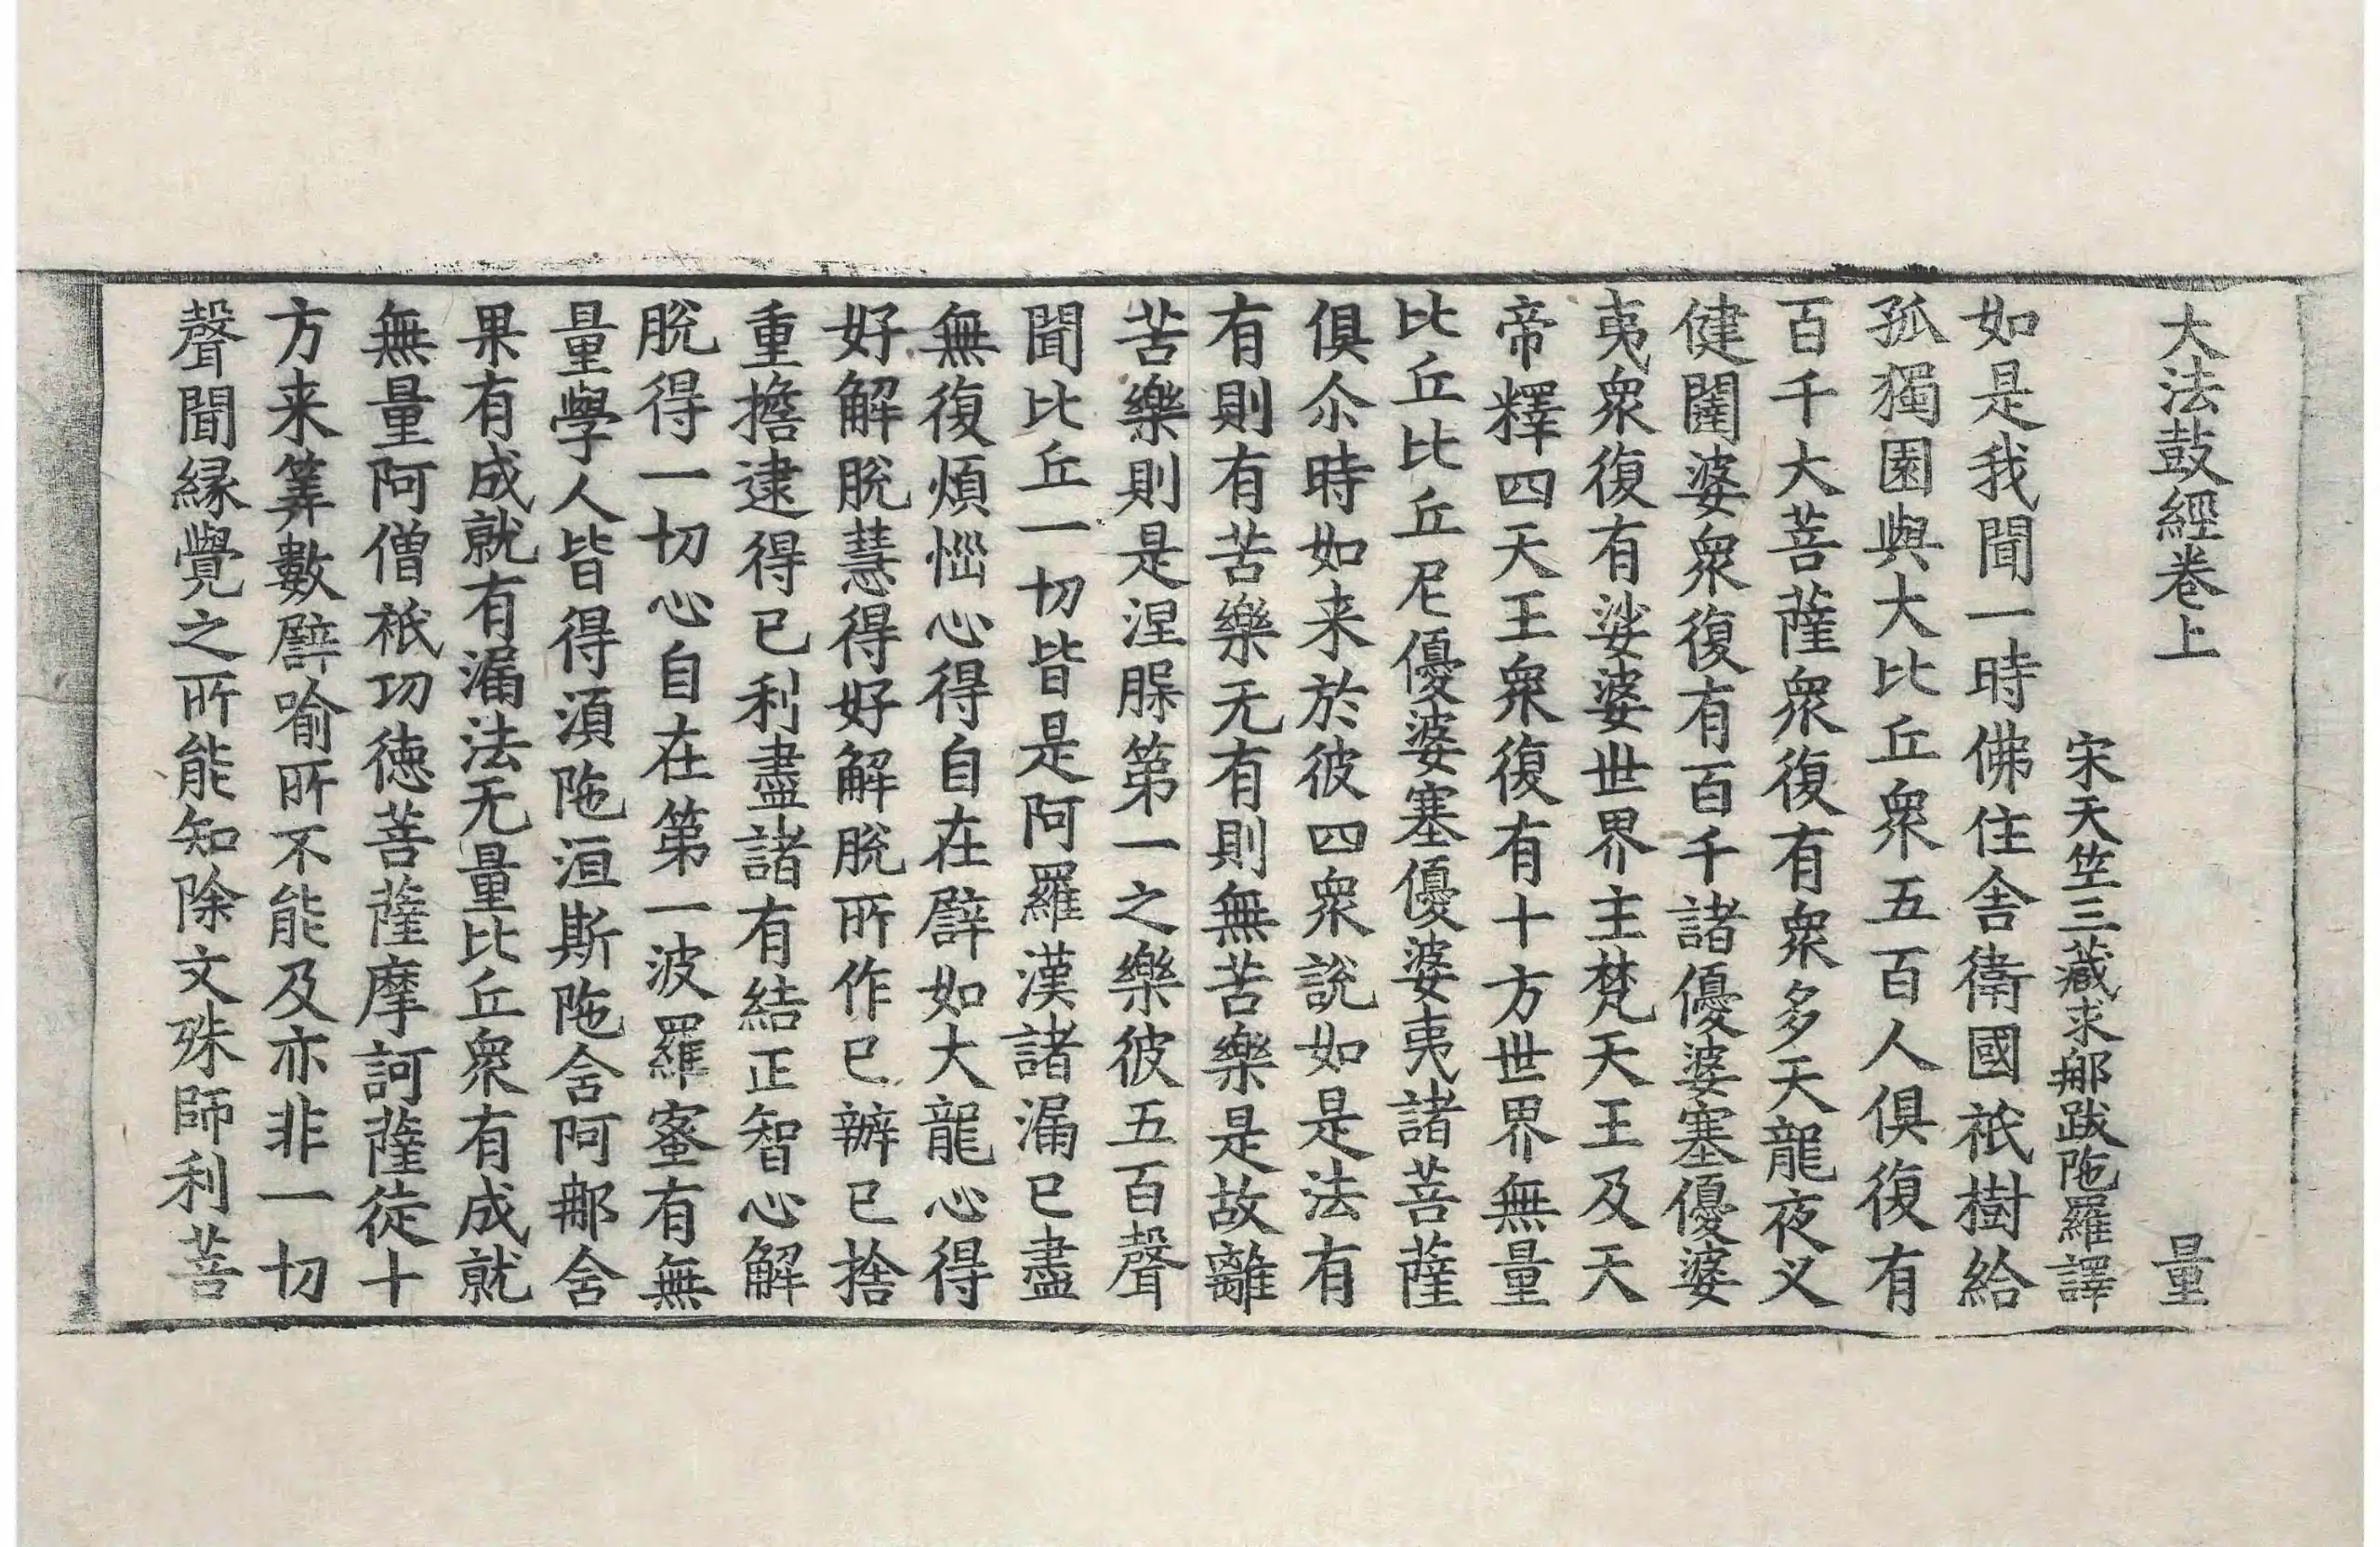 大法鼓經卷上 量
宋天竺三藏求𨚗跋陁羅譯
如是我聞一時佛住舍衛國祇樹給
孤獨園與大比丘衆五百人俱復有
百千大菩薩衆復有衆多天龍夜义
健闥婆衆復有百千諸優婆塞優婆
夷衆復有娑婆世界主梵天王及天
帝釋四天王衆復有十方世界無量
比丘比丘尼優婆塞優婆夷諸菩薩
俱尒時如来於彼四衆說如是法有
有則有苦樂无有則無苦樂是故離
苦樂則是涅槃第一之樂彼五百聲
聞比丘一切皆是阿羅漢諸漏已盡
無復煩惱心得自在譬如大龍心得
好解脫慧得好解脫所作已辦已捨
重擔逮得已利盡諸有結正智心解
脫得一切心自在第一波羅蜜有無
量學人皆得湏陁洹斯陁含阿𨚗含
果有成就有漏法无量比丘衆有成就
無量阿僧祇功德菩薩摩訶薩從十
方来筭數譬喻所不能及亦非一切
聲聞縁覺之所能知除文殊師利菩